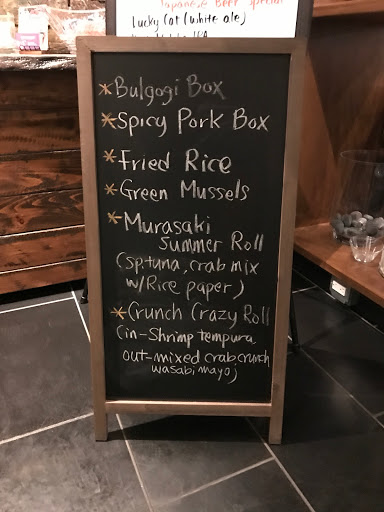 Japanese Beer Special
Lucky Cat (white ale)
*Bulgogi Box
*Spicy Pork Box
*Fried Rice
*Green Mussels
*Murasaki
Summer Roll
(sp.tuna, crab mix
w/Rice paper)
*Crunch Crazy Roll
(in-Shrimp tempura
out-mixed crab crunch
wasabi mayo)